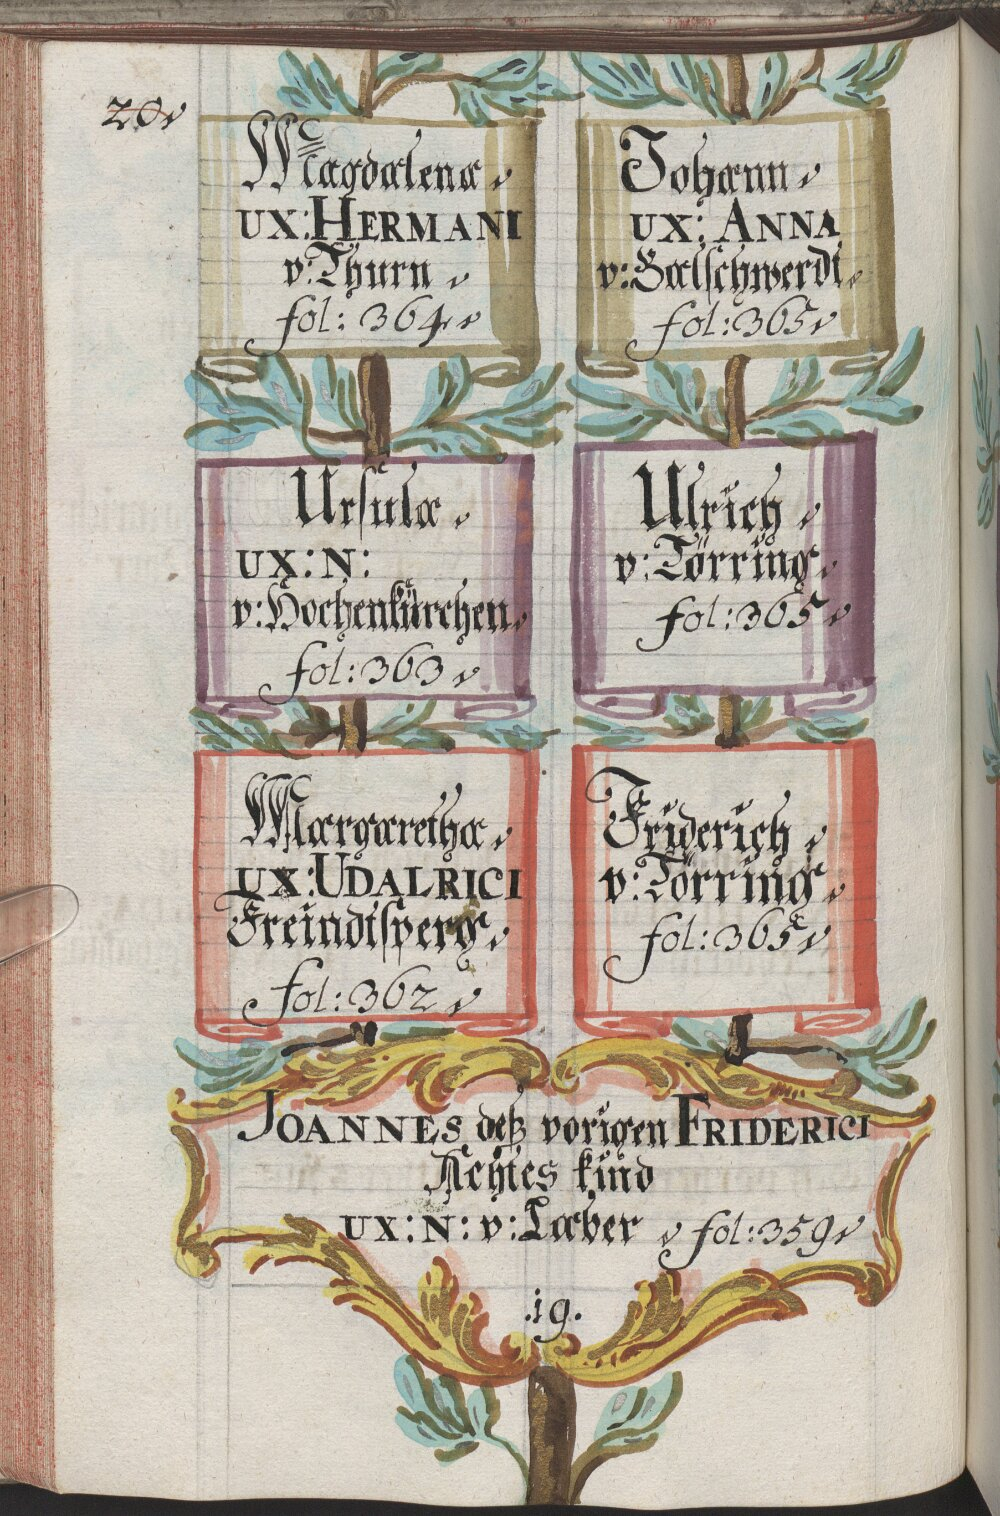 20
Magdalena
UX: HERMANI
v: Thurn
fol: 364
Johann
UX: ANNA
v: Galschwerdt
fol: 365
Ursula
UX: N:
v: Hochenkürchen
fol: 363
Ulrich
v: Törring
fol: 365
Margaretha
UX: UDALRICI
Freindtsperg
fol: 362
Friderich
v: Törring
fol: 365
JOANNES deß vorigen FRIDERICI
Achtes kind
UX: N: v: Taber fol: 359
.19.